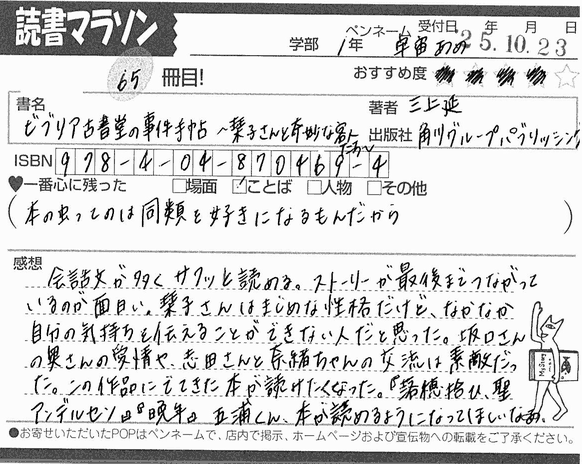 読書マラソン
学部 1年 ペンネーム 早宙あめ 受付日 '25.10.23 年 月 日
65 冊目! おすすめ度 ★★★★☆
書名 著者 三上延
ビブリア古書堂の事件手帖 ～栞子さんと奇妙な客人たち～ 出版社 角川グループパブリッシング
ISBN 978-4-04-870469-4
♥一番心に残った □場面 ☑ことば □人物 □その他
(本の虫ってのは同類を好きになるもんだから)
感想
会話文が多くサクッと読める。ストーリーが最後までつながって
いるのが面白い。栞子さんはまじめな性格だけど、なかなか
自分の気持ちを伝えることができない人だと思った。坂口さん
の奥さんの愛情や、志田さんと奈緒ちゃんの交流は素敵だっ
た。この作品にでてきた本が読みたくなった。『落穂拾ひ、聖
アンデルセン』『晩年』 五浦くん、本が読めるようになってほしいなあ。
●お寄せいただいたPOPはペンネームで、店内で掲示、ホームページおよび宣伝物への転載をご了承ください。